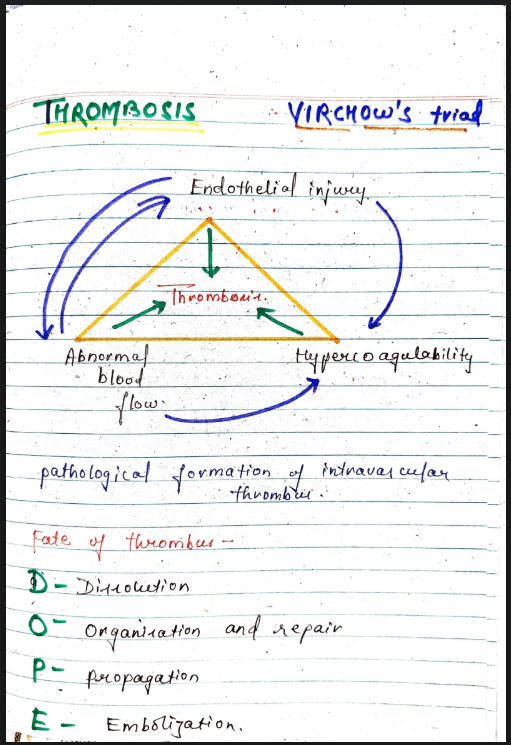 THROMBOSIS
VIRCHOW's triad
Endothelial injury
Thrombosis.
Abnormal
blood
flow.
Hypercoagulability
pathological formation of intravascular
thrombus.
Fate of thrombus -
D - Dissolution
O - Organisation and repair
P - propagation
E - Embolization.